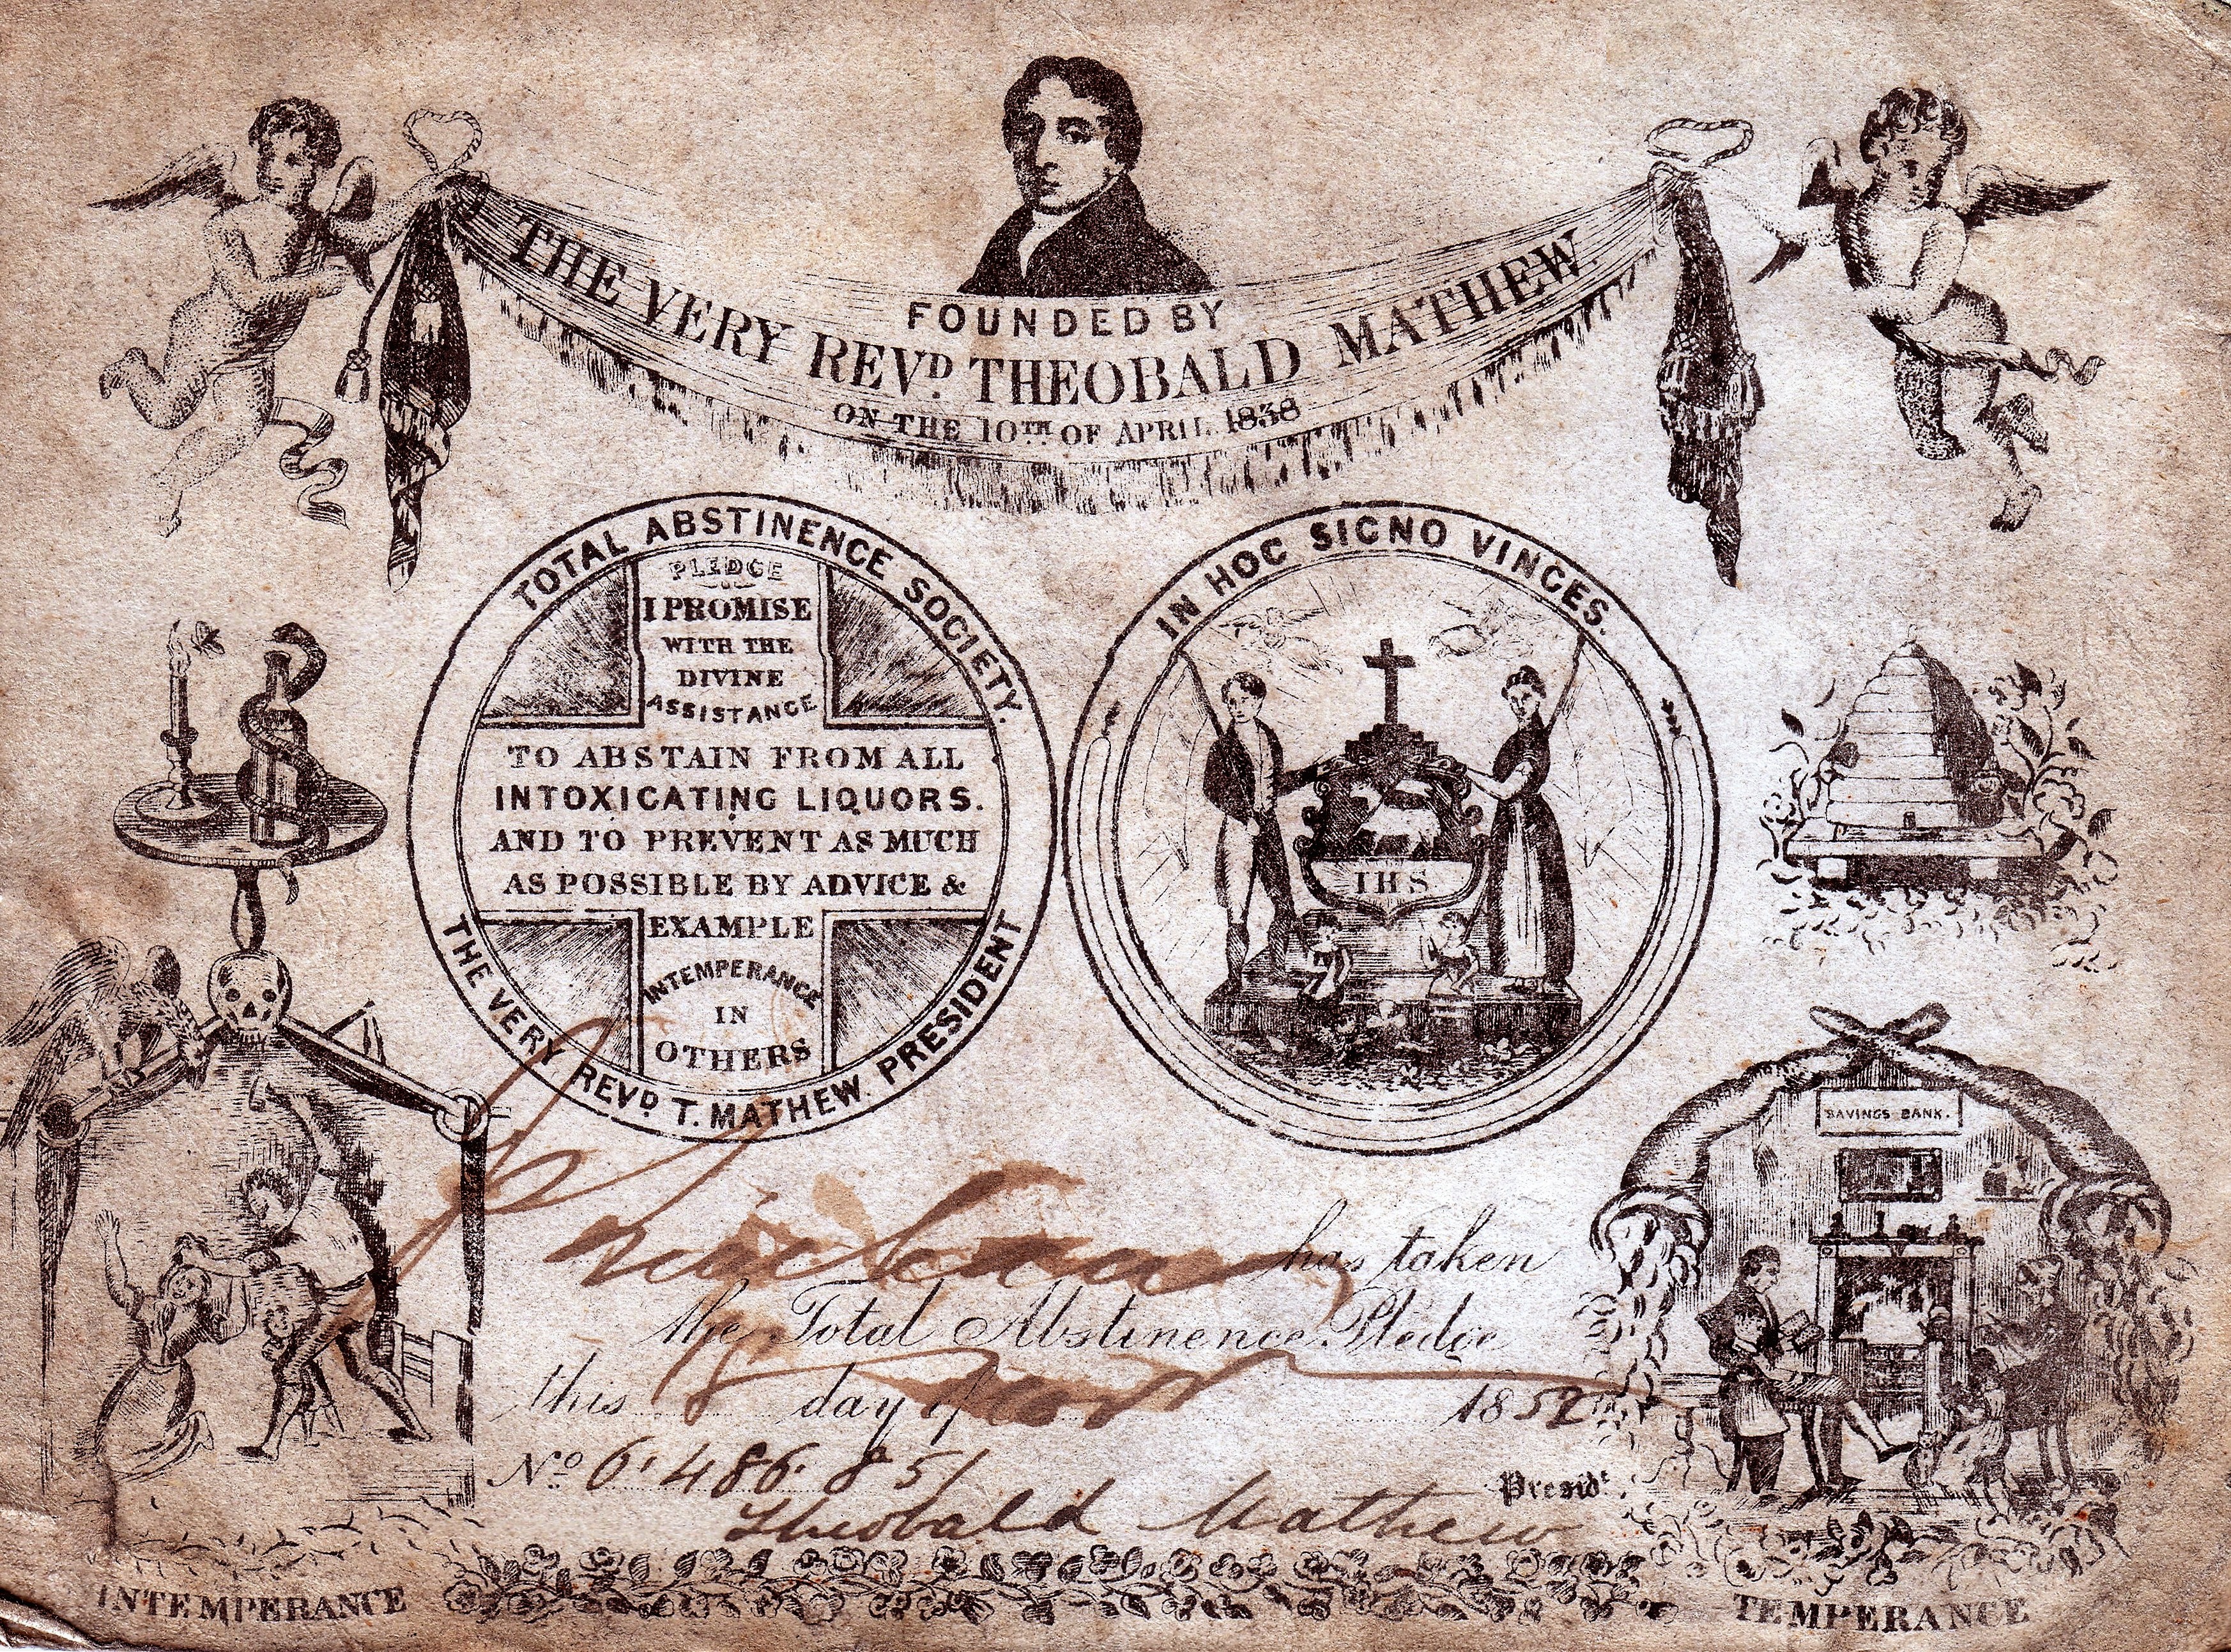 FOUNDED BY
THE VERY REVD. THEOBALD MATHEW
ON THE 10TH OF APRIL 1838
TOTAL ABSTINENCE SOCIETY.
PLEDGE
I PROMISE
WITH THE
DIVINE
ASSISTANCE
TO ABSTAIN FROM ALL
INTOXICATING LIQUORS.
AND TO PREVENT AS MUCH
AS POSSIBLE BY ADVICE &
EXAMPLE
INTEMPERANCE
IN
OTHERS
THE VERY REVD T. MATHEW. PRESIDENT
IN HOC SIGNO VINCES.
IHS
SAVINGS BANK.
has taken
the Total Abstinence Pledge
this day of 1852
No 6.486.851
Presidt.
Theobald Mathew
INTEMPERANCE
TEMPERANCE